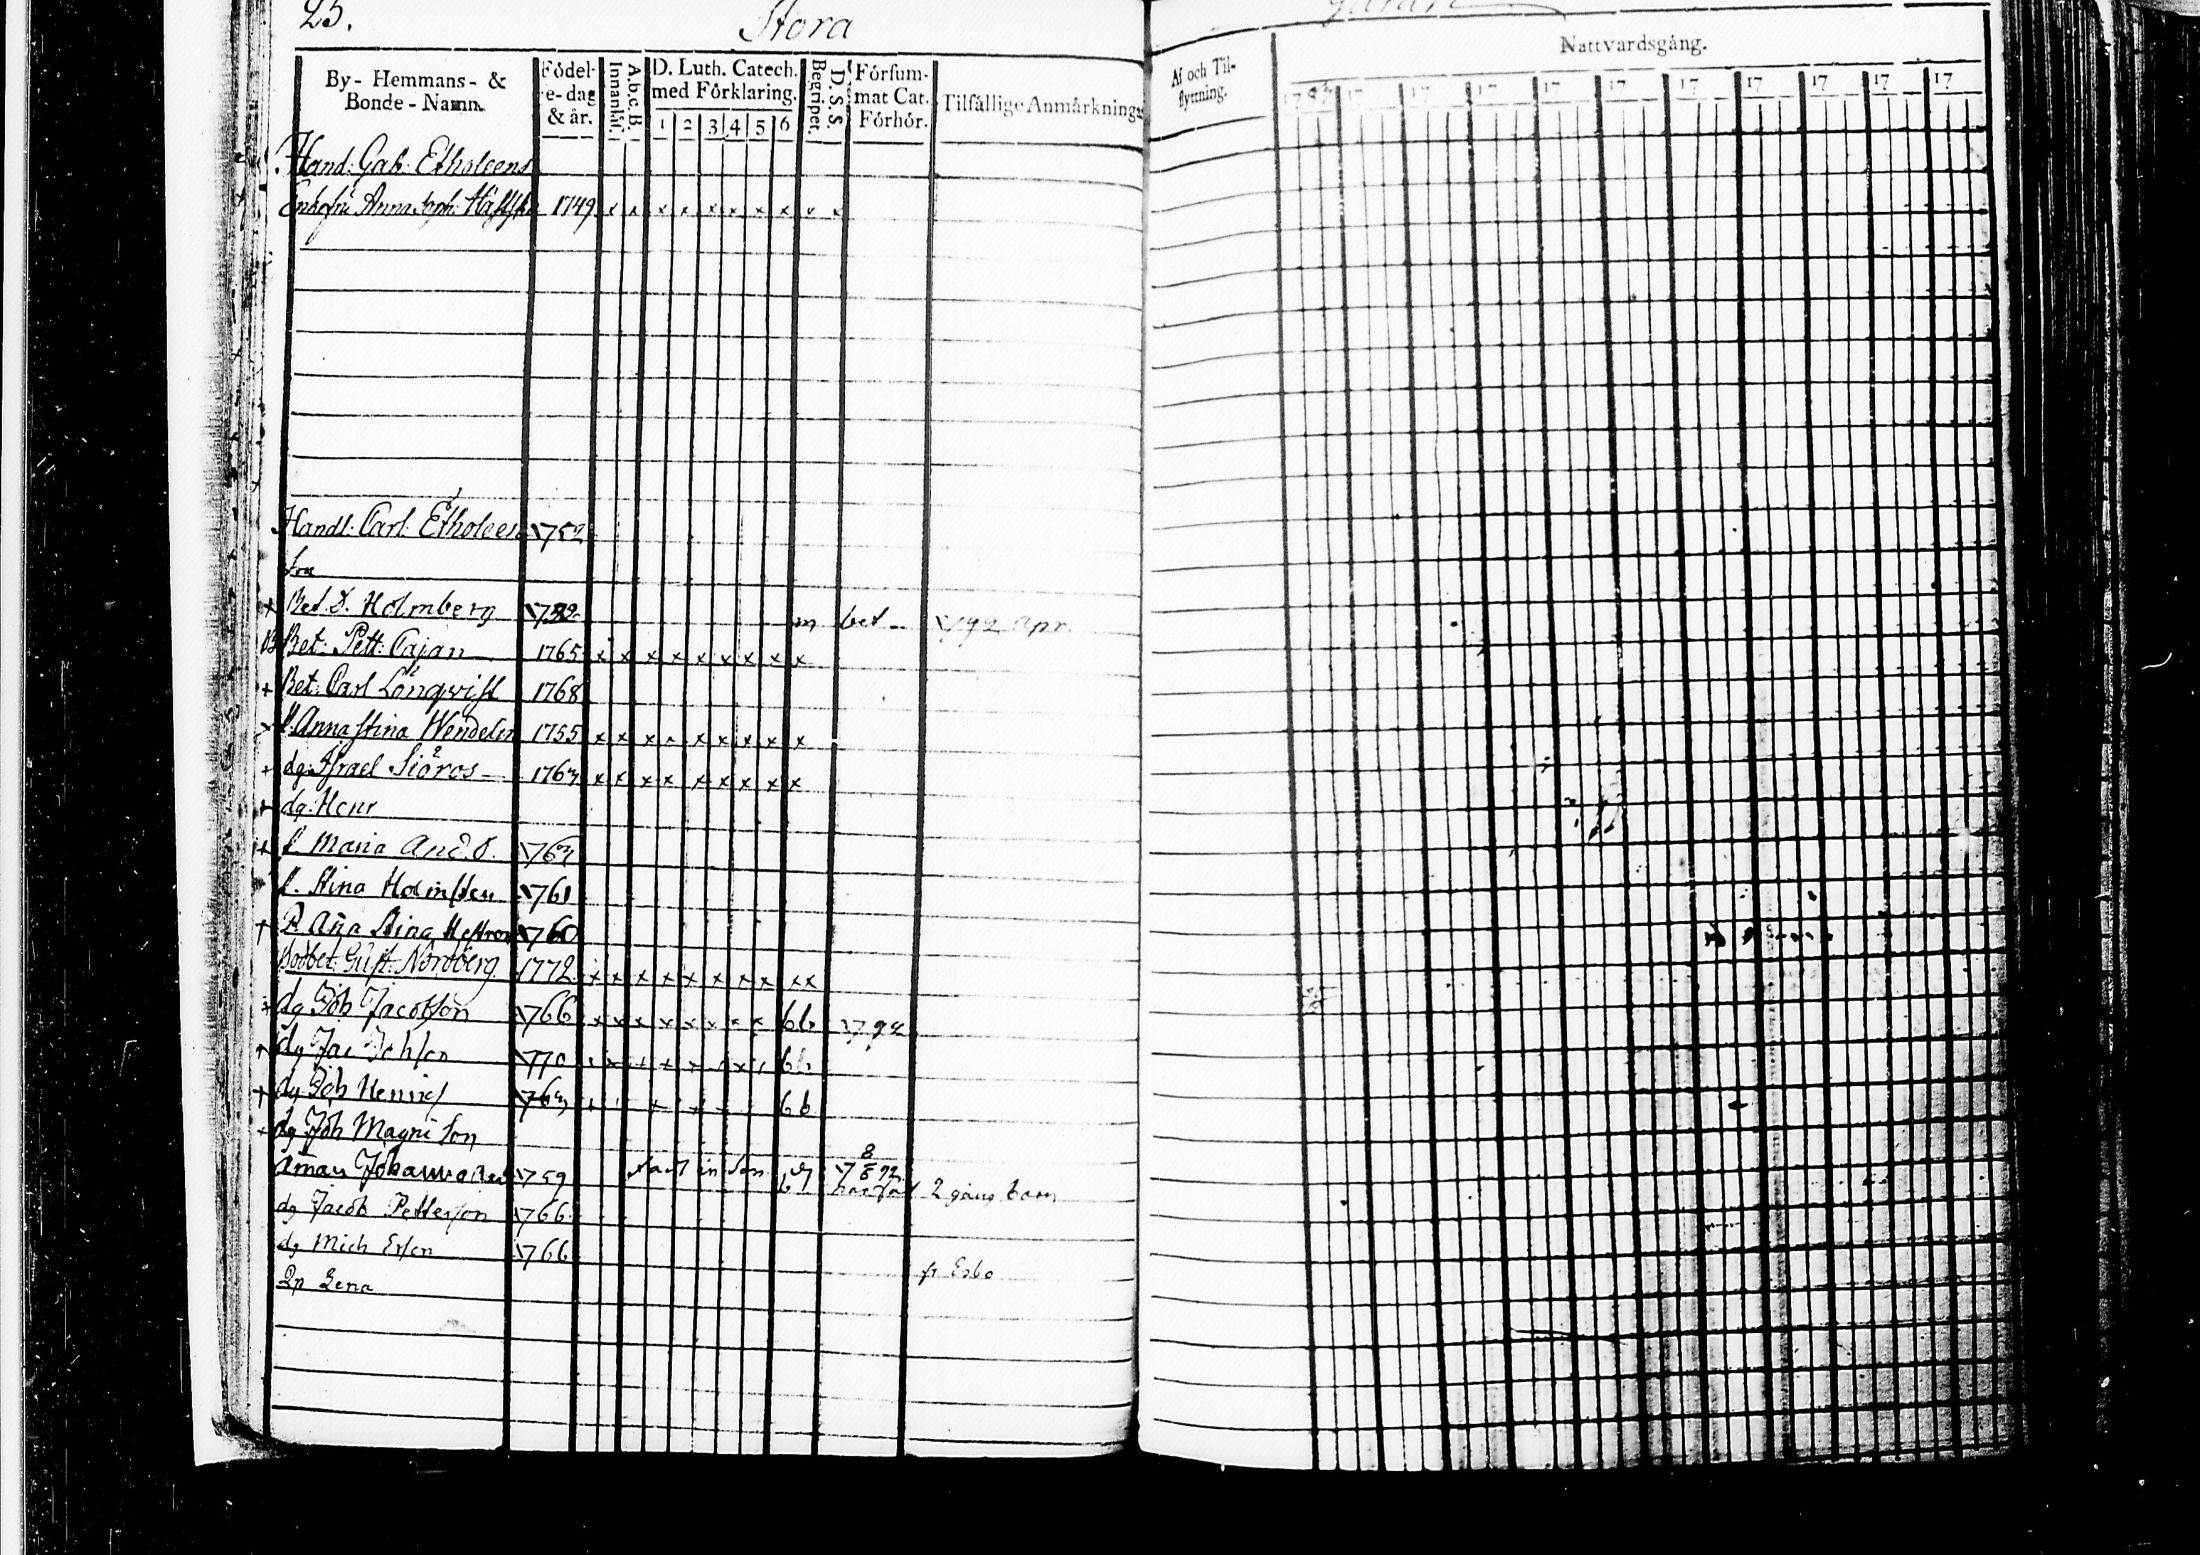 25. Stora
By- Hemmans- & Bonde-Namn. Födel-e-dag & år. A.b.c.B. Innanläs. D. Luth. Catech. med Förklaring. 1 2 3 4 5 6 D. S. S. Begripet. Försum-mat Cat. Förhör. Tilfällige Anmärkning
Hand: Gab. Etholeens
Enkefru Anna Soph: 1749 x x x x x x x x x x
Handl. Carl Etholeen 1752
fru
+ Bet. D. Holmberg m bet 1792 Apr.
Bet: Pett: Cajan 1765 x x x x x x x x x
+ Bet: Carl Lönqvist 1768
Anna Stina Wendelin 1755 x x x x x x x x x
dg: Israel Siöros 1763 x x x x x x x x x
dg: Henr
Maria And. D. 1763
Stina Holmsten 1761
P. Aña Stina 1760
Bodbet: Gust: Nordberg 1772 x x x x x x x x x x
+ dg Joh Jacobson 1766 x x x x x x x x 6b 1792
dg Jac Johson 1770 6b
dg Joh Henrics 1763 6b
dg Joh Magni Son
Johanna 1759 2 gång barn
dg Jacob Petterson 1766
dg Mich Erson 1766
Pp Lena fr Esbo
Af och Til-flyttning. Nattvardsgång.
17 17 17 17 17 17 17 17 17 17